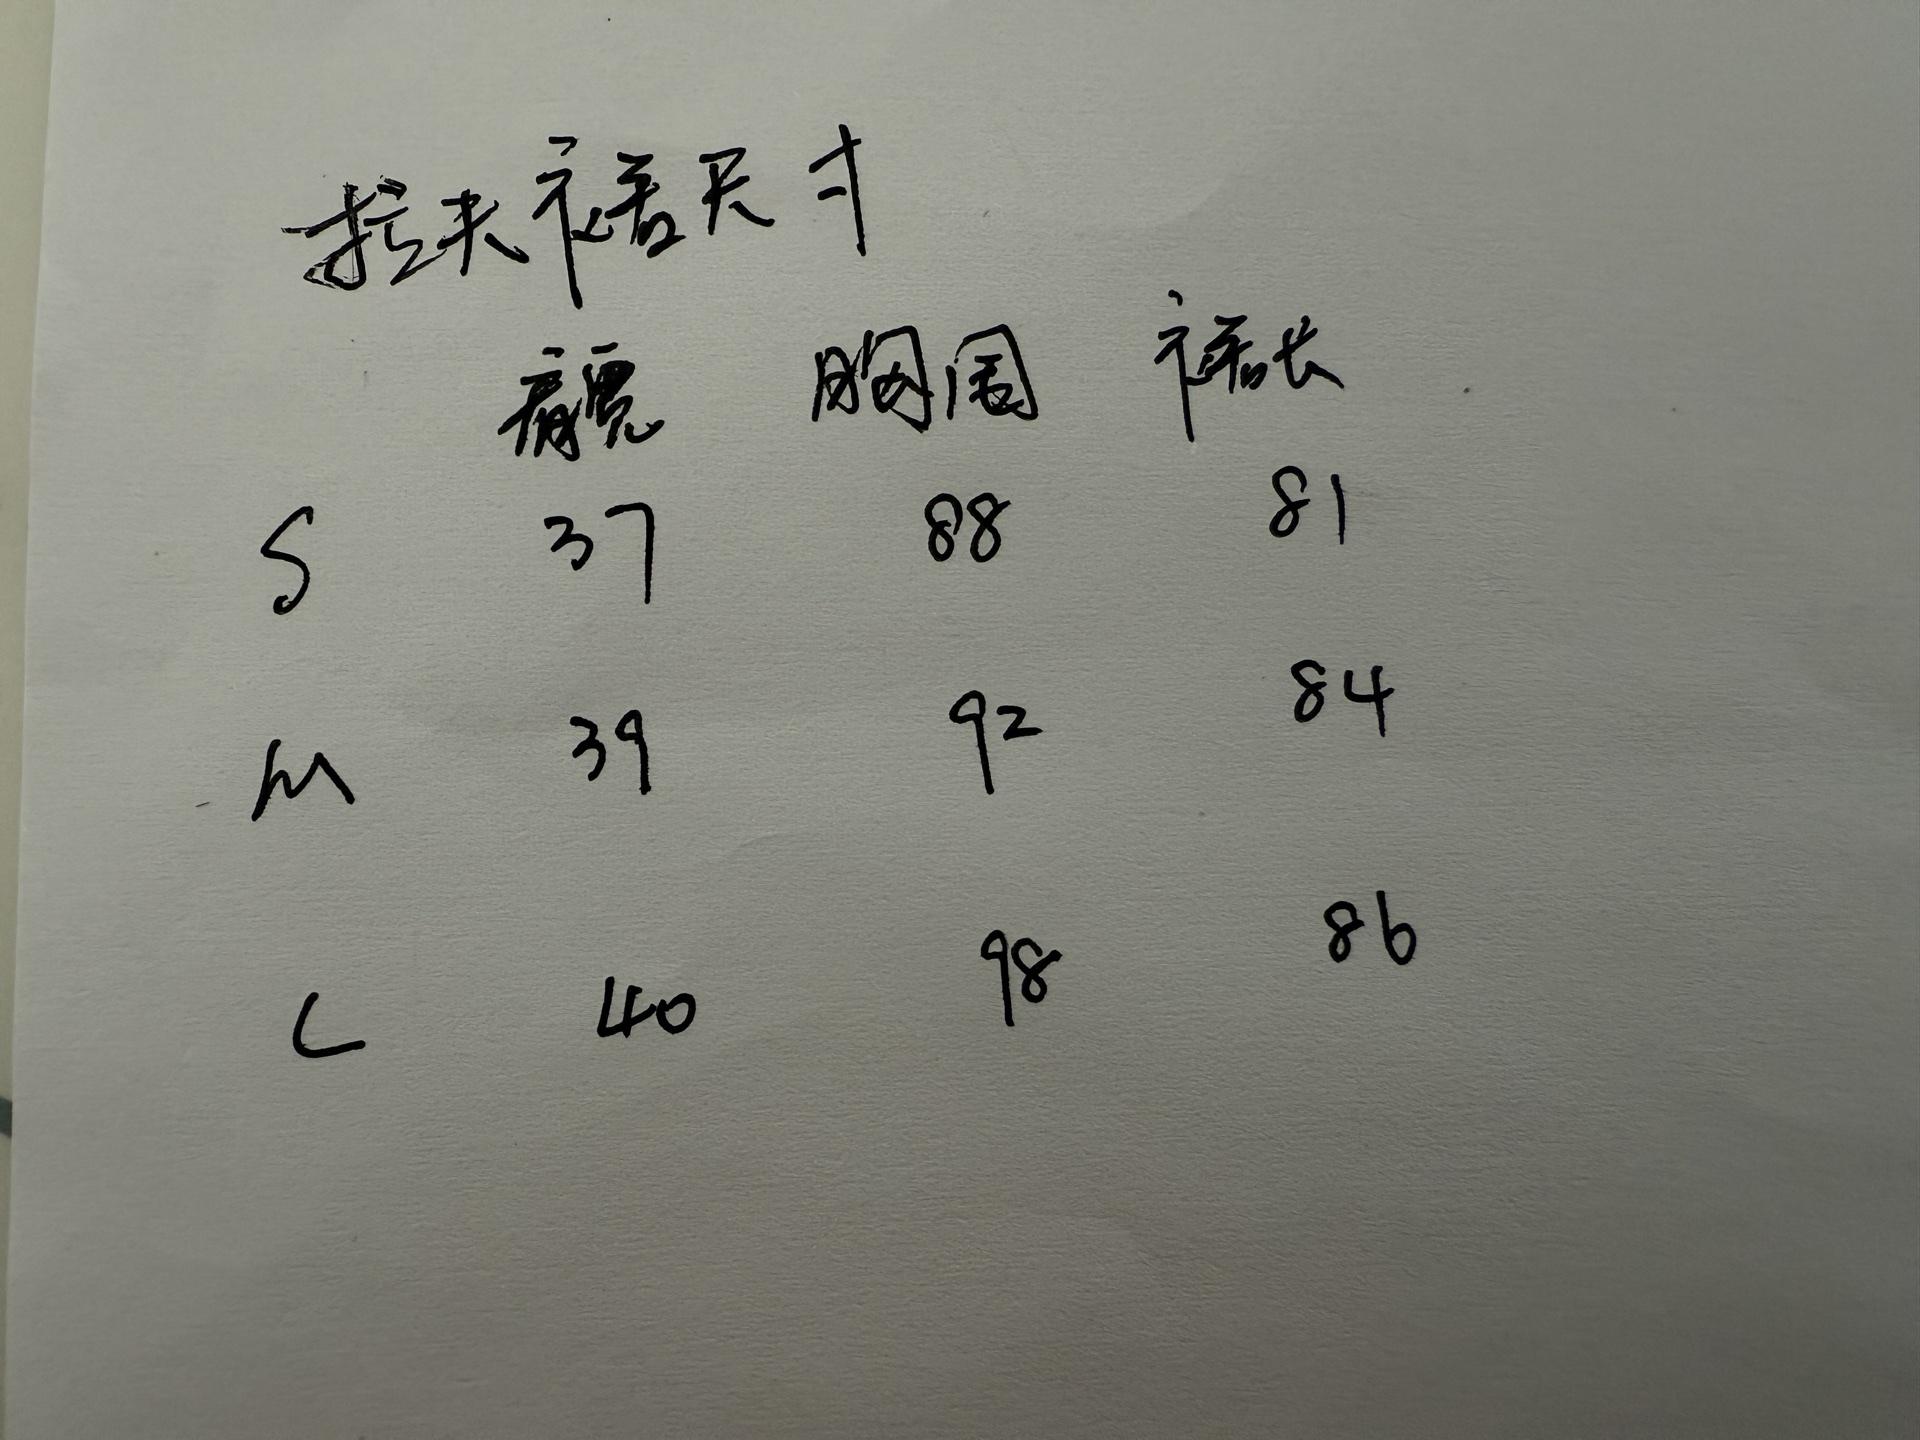 拉夫裙尺寸
肩宽 胸围 裙长
S 37 88 81
M 39 92 84
L 40 98 86